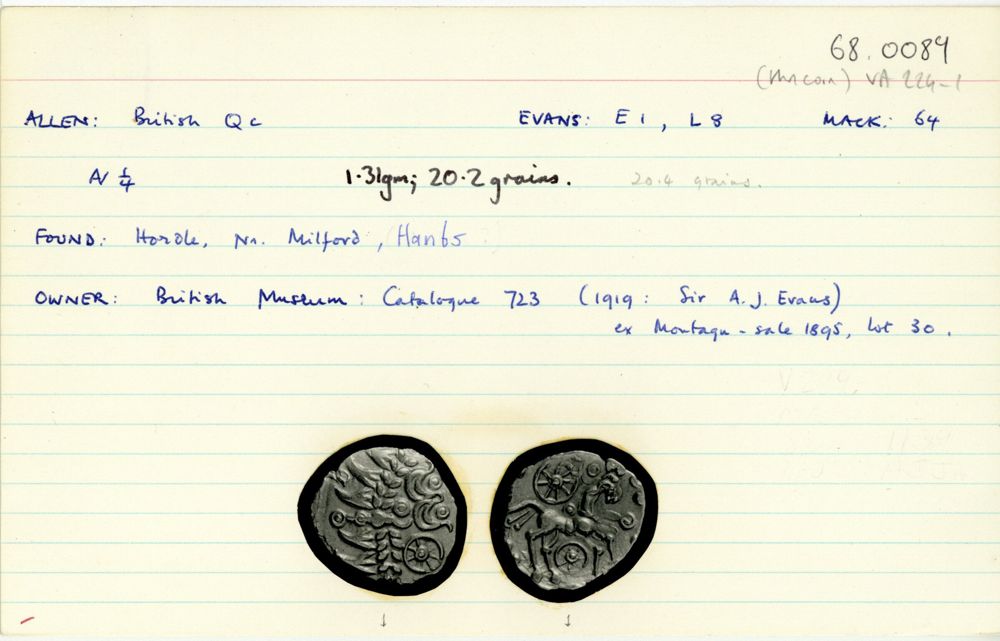 68.0089
(this coin) VA 224-1
ALLEN: British Qc EVANS: E 1, L 8 MACK: 64
A/ 1/4 1.31gm; 20.2 grains. 20.4 grains.
FOUND: Hordle, Nr. Milford, Hants
OWNER: British Museum: Catalogue 723 (1919: Sir A.J. Evans)
ex Montagu - sale 1895, lot 30.